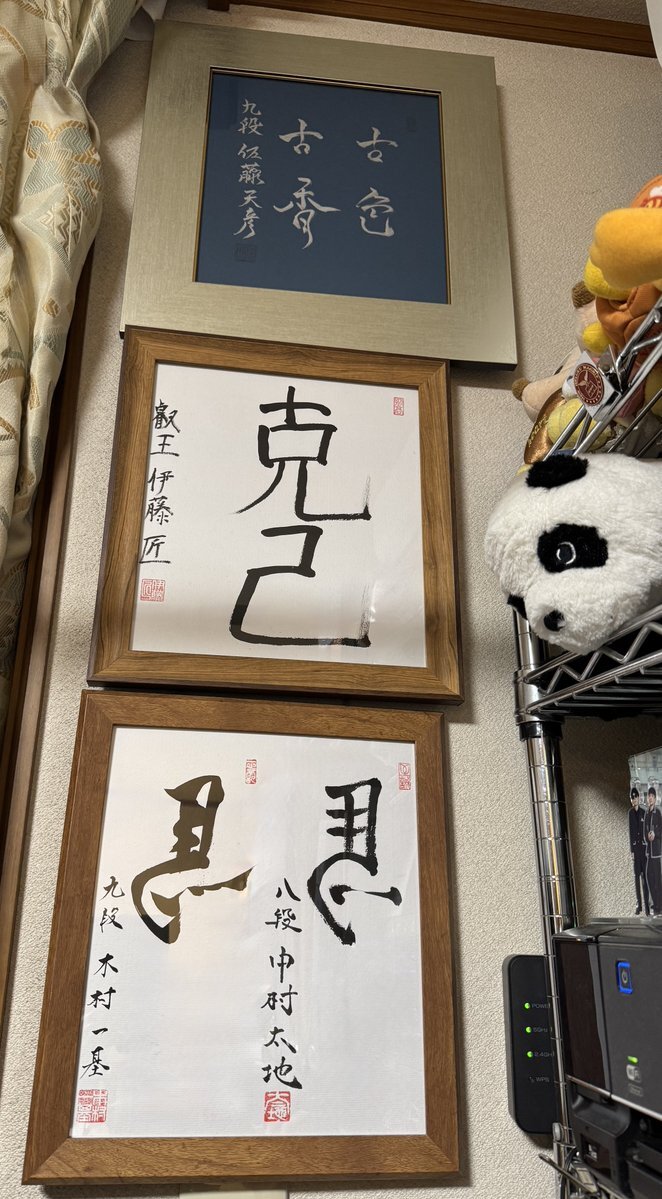 古色
古香
九段 佐藤天彦
克己
叡王 伊藤 匠
馬
八段 中村太地
馬
九段 木村一基
POWER
5GHz
2.4GHz
WPS